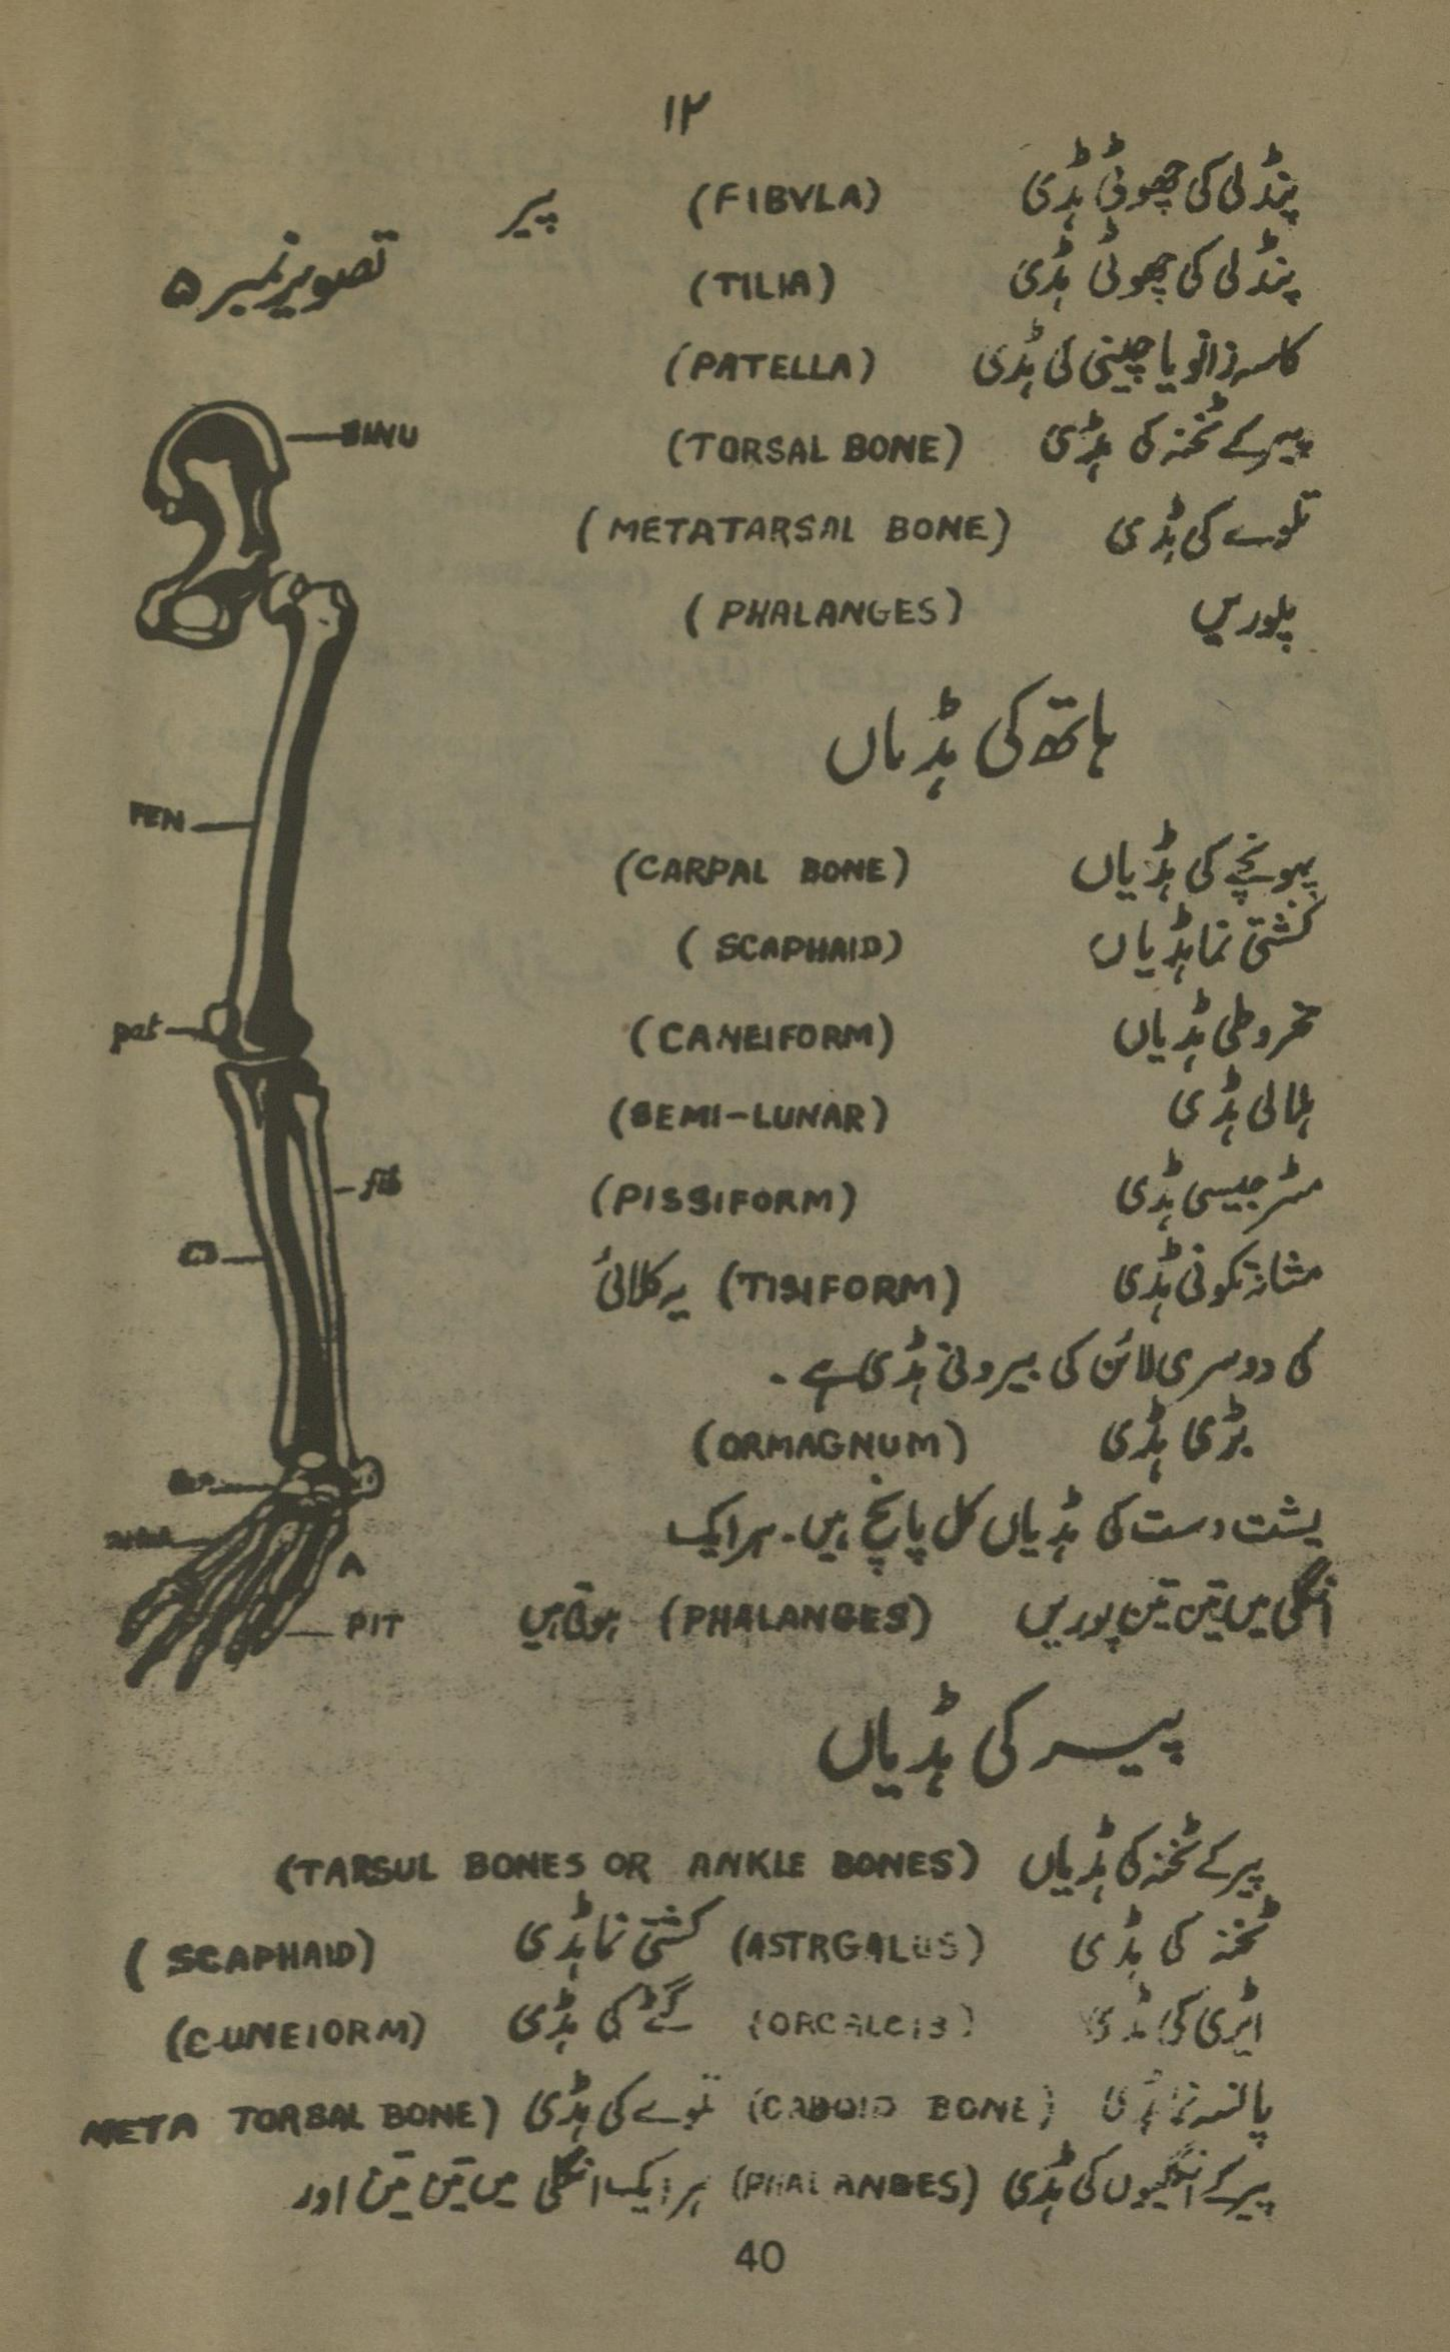 ۱۲
پنڈلی کی چھوٹی ہڈی (FIBVLA)
پیر
تصویر نمبر ۵
پنڈلی کی چھوٹی ہڈی (TILIA)
کاسہ زانو یا چینی کی ہڈی (PATELLA)
پیر کے ٹخنہ کی ہڈی (TORSAL BONE)
تلوے کی ہڈی (METATARSAL BONE)
پلوریں (PHALANGES)
ہاتھ کی ہڈیاں
پہونچے کی ہڈیاں (CARPAL BONE)
کشتی نما ہڈیاں (SCAPHAID)
مخروطی ہڈیاں (CANEIFORM)
ہلالی ہڈی (SEMI-LUNAR)
مٹر جیسی ہڈی (PISSIFORM)
تکونی ہڈی (TISIFORM) یہ کلائی
کی دوسری لائن کی بیرونی ہڈی ہے۔
بڑی ہڈی (ORMAGNUM)
پشت دست کی ہڈیاں کل پانچ ہیں۔ ہر ایک
انگلی میں تین تین پوریں (PHALANGES) ہوتی ہیں
پیر کی ہڈیاں
پیر کے ٹخنہ کی ہڈیاں (TARSUL BONES OR ANKLE BONES)
ٹخنہ کی ہڈی (ASTRGALUS) کشتی نما ہڈی (SCAPHAID)
ایڑی کی ہڈی (ORCALCIS) گٹے کی ہڈی (CUNEIORM)
پانسہ نما ہڈی (CABOID BONE) تلوے کی ہڈی (META TORSAL BONE
پیر کے انگلیوں کی ہڈی (PHALANGES) ہر ایک انگلی میں تین تین اور
40
FEN
pat
fib
A
PIT